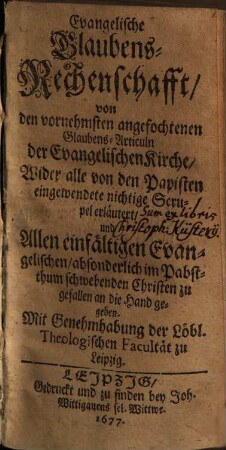 Evangelische
Glaubens-
Rechenschafft/
von
den vornehmsten angefochtenen
Glaubens-Articuln
der Evangelischen Kirche/
Wider alle von den Papisten
eingewendete nichtige Scru-
pel erläutert/ Sum ex libris
und Christoph: Küsterÿ.
Allen einfältigen Evan-
gelischen/ absonderlich im Pabst-
thum schwebenden Christen zu
gefallen an die Hand ge-
geben.
Mit Genehmhabung der Löbl.
Theologischen Facultät zu
Leipzig.
LEIPZIG/
Gedruckt und zu finden bey Joh.
Wittigauens sel. Wittwe.
1677.